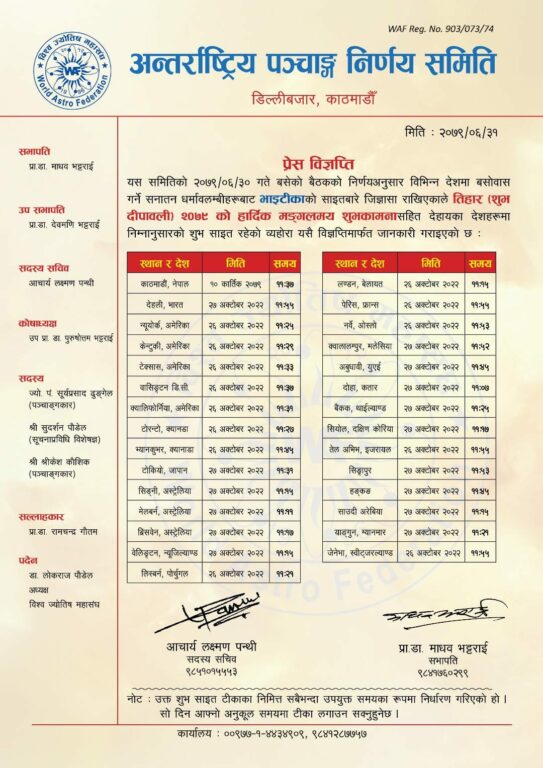 WAF Reg. No. 903/073/74
विश्व ज्योतिष महासंघ
WAF
World Astro Federation
अन्तर्राष्ट्रिय पञ्चाङ्ग निर्णय समिति
डिल्लीबजार, काठमाडौँ
मिति : २०७९/०६/३१
सभापति
प्रा.डा. माधव भट्टराई
उप सभापति
प्रा.डा. देवमणि भट्टराई
सदस्य सचिव
आचार्य लक्ष्मण पन्थी
कोषाध्यक्ष
उप प्रा. डा. पुरुषोत्तम भट्टराई
सदस्य
ज्यो. पं. सूर्यप्रसाद ढुङ्गेल
(पञ्चाङ्गकार)
श्री सुदर्शन पौडेल
(सूचनाप्रविधि विशेषज्ञ)
श्री श्रीकेश कौशिक
(पञ्चाङ्गकार)
सल्लाहकार
प्रा.डा. रामचन्द्र गौतम
पदेन
डा. लोकराज पौडेल
अध्यक्ष
विश्व ज्योतिष महासंघ
प्रेस विज्ञप्ति
यस समितिको २०७९/०६/३० गते बसेको बैठकको निर्णयअनुसार विभिन्न देशमा बसोवास
गर्ने सनातन धर्मावलम्बीहरूबाट भाइटीकाको साइतबारे जिज्ञासा राखिएकाले तिहार (शुभ
दीपावली) २०७९ को हार्दिक मङ्गलमय शुभकामनासहित देहायका देशहरूमा
निम्नानुसारको शुभ साइत रहेको व्यहोरा यसै विज्ञप्तिमार्फत जानकारी गराइएको छ :
स्थान र देश मिति समय
काठमाडौं, नेपाल १० कार्तिक २०७९ ११:३७
देहली, भारत २७ अक्टोबर २०२२ ११:५५
न्यूयोर्क, अमेरिका २६ अक्टोबर २०२२ ११:२५
केन्टुकी, अमेरिका २६ अक्टोबर २०२२ ११:२९
टेक्सास, अमेरिका २६ अक्टोबर २०२२ ११:३३
वासिङ्टन डि.सी. २६ अक्टोबर २०२२ ११:३७
क्यालिफोर्निया, अमेरिका २६ अक्टोबर २०२२ ११:३१
टोरन्टो, क्यानडा २६ अक्टोबर २०२२ ११:२७
भ्यानकुभर, क्यानाडा २६ अक्टोबर २०२२ ११:४५
टोकियो, जापान २७ अक्टोबर २०२२ ११:३१
सिड्नी, अस्ट्रेलिया २७ अक्टोबर २०२२ ११:१५
मेलबर्न, अस्ट्रेलिया २७ अक्टोबर २०२२ ११:११
ब्रिसवेन, अस्ट्रेलिया २७ अक्टोबर २०२२ ११:१७
वेलिङ्टन, न्यूजिल्याण्ड २७ अक्टोबर २०२२ ११:१५
लिस्बर्न, पोर्चुगल २६ अक्टोबर २०२२ ११:२१
स्थान र देश मिति समय
लण्डन, बेलायत २६ अक्टोबर २०२२ ११:१५
पेरिस, फ्रान्स २६ अक्टोबर २०२२ ११:४५
नर्वे, ओस्लो २६ अक्टोबर २०२२ ११:५३
क्वालालम्पुर, मलेसिया २७ अक्टोबर २०२२ ११:५२
अबुधावी, युएई २७ अक्टोबर २०२२ ११:४५
दोहा, कतार २७ अक्टोबर २०२२ ११:०७
बैंकक, थाईल्याण्ड २७ अक्टोबर २०२२ ११:२५
सियोल, दक्षिण कोरिया २७ अक्टोबर २०२२ ११:१७
तेल अभिभ, इजरायल २६ अक्टोबर २०२२ ११:५५
सिङ्गापुर २७ अक्टोबर २०२२ ११:५३
हङकङ २७ अक्टोबर २०२२ ११:१५
साउदी अरेबिया २७ अक्टोबर २०२२ ११:१५
याङ्गुन, म्यानमार २७ अक्टोबर २०२२ ११:२१
जेनेभा, स्वीट्जरल्याण्ड २६ अक्टोबर २०२२ ११:५५
आचार्य लक्ष्मण पन्थी
सदस्य सचिव
९८५१०१५५५३
प्रा.डा. माधव भट्टराई
सभापति
९८४१७६०२९९
नोट : उक्त शुभ साइत टीकाका निमित्त सबैभन्दा उपयुक्त समयका रूपमा निर्धारण गरिएको हो ।
सो दिन आफ्नो अनुकूल समयमा टीका लगाउन सक्नुहुनेछ ।
कार्यालय : ००९७७-१-४४३४९०९, ९८४१२८७७५७